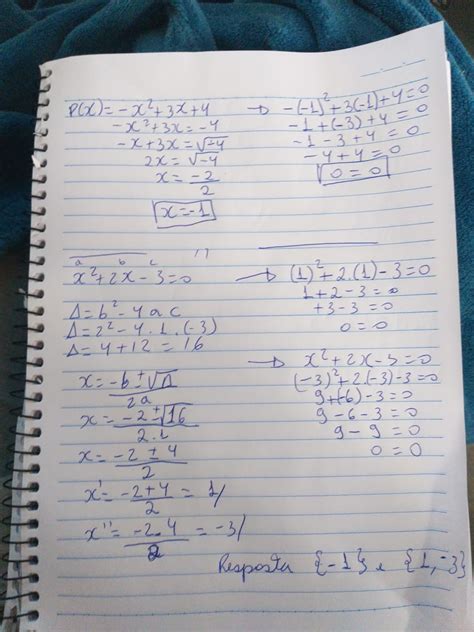 P(x) = -x² + 3x + 4
-x² + 3x = -4
-x + 3x = √-4
2x = √-4
x = -2/2
x = -1
→ -(-1)² + 3(-1) + 4 = 0
-1 + (-3) + 4 = 0
-1 - 3 + 4 = 0
-4 + 4 = 0
0 = 0
a b c
x² + 2x - 3 = 0
Δ = b² - 4 a c
Δ = 2² - 4 . 1 . (-3)
Δ = 4 + 12 = 16
x = -b ± √Δ / 2a
x = -2 ± √16 / 2.1
x = -2 ± 4 / 2
x' = -2 + 4 / 2 = 1/
x'' = -2 - 4 / 2 = -3/
→ (1)² + 2.(1) - 3 = 0
1 + 2 - 3 = 0
+3 - 3 = 0
0 = 0
→ x² + 2x - 3 = 0
(-3)² + 2.(-3) - 3 = 0
9 + (-6) - 3 = 0
9 - 6 - 3 = 0
9 - 9 = 0
0 = 0
Resposta {-1} e {1, -3}